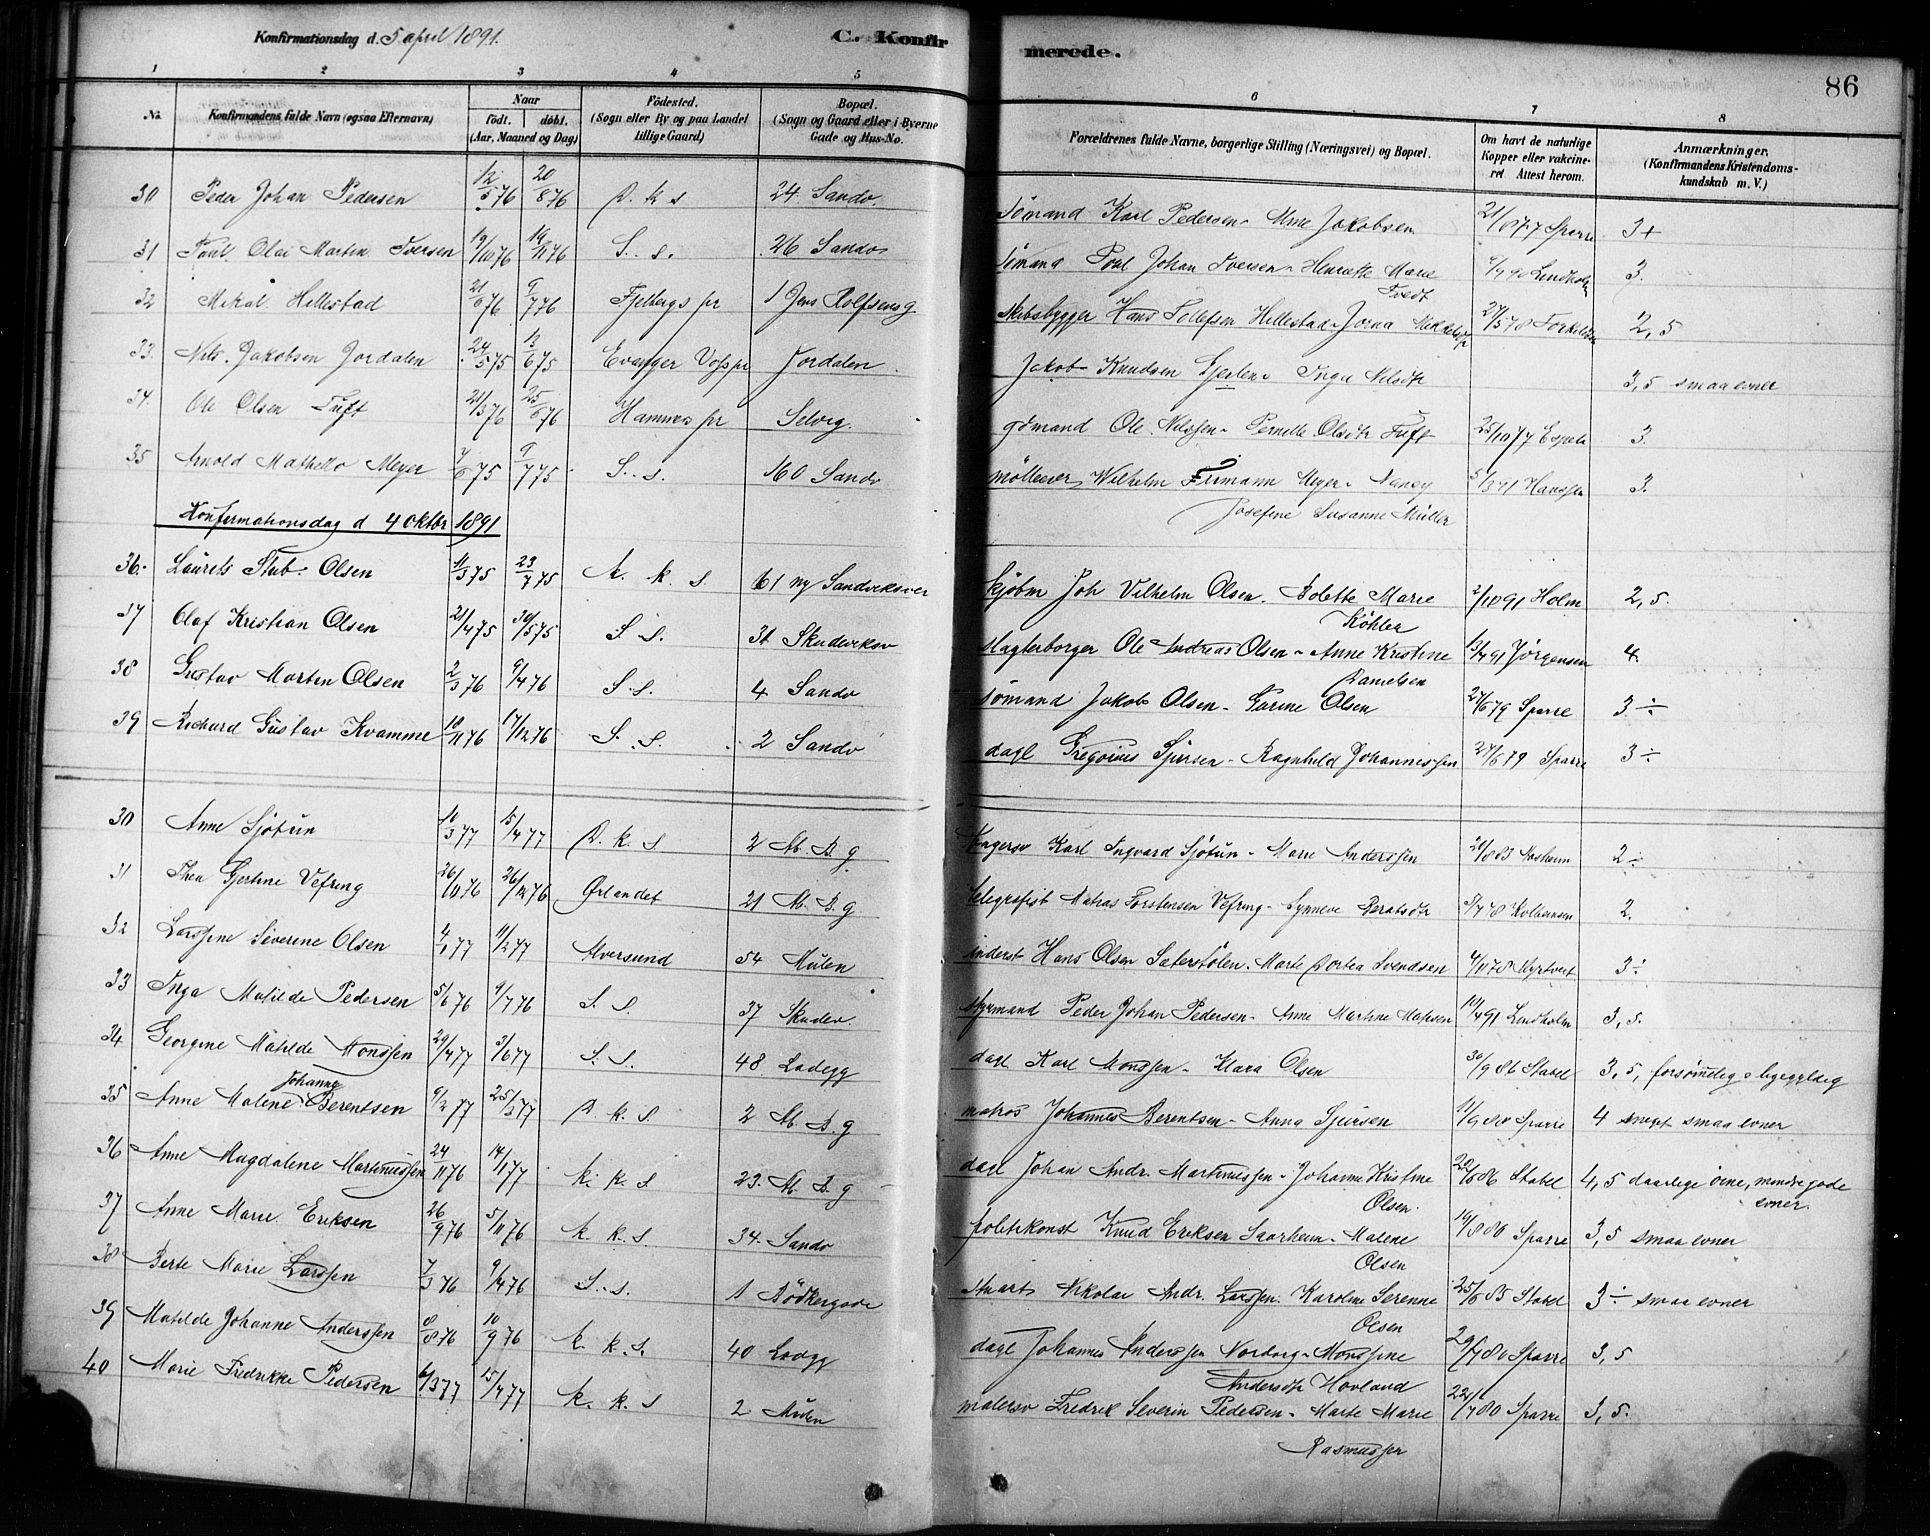 Konfirmationsdag d. 5 april 1891.
C. Konfirmerede.
86
1 2 3 4 5 6 7 8
No.
Konfirmandens fulde Navn (ogsaa Efternavn)
Naar
födt. döbt.
(Aar, Maaned og Dag)
Födested.
(Sogn eller By og paa Landet
tillige Gaard)
Bopæl.
(Sogn og Gaard eller i Byerne
Gade og Hus-No.
Forældrenes fulde Navne, borgerlige Stilling (Næringsvei) og Bopæl.
Om havt de naturlige
Kopper eller vakcine-
ret Attest herom.
Anmærkninger.
(Konfirmandens Kristendoms-
kundskab m. V.)
30 Peder Johan Pedersen 12/5 76 20/8 76 D. k. s 24 Sandv. Sømand Karl Pedersen - Jakobsen 21/6 77 Sparre 3+
31 Poul Olai Martin Iversen 19/10 76 19/11 76 S. s. 26 Sandv Sømand Poul Johan Iversen - Henrette Marie Tvedt Lindholm 3.
32 Mikal Hillestad 21/6 76 9/7 76 Fjelbergs pr 1 Jens Rolfsensg Skibsbygger Hans Tollefsen Hillestad - Jorna 27/5 78 Torkildsen 2,5
33. Nils Jakobsen Jordalen 24/5 75 13/6 75 Evanger Voss pr Jordalen Jakob Knudsen - Inga Nilsdtr 3,5 smaa evner
34. Ole Olsen Tuft 21/3 76 25/6 76 Hammers pr Selvig. gdmand Ole Nilssen - Pernille Olsdtr Tuft 25/10 77 Espela 3.
35 Arnold Mathello Meyer 7/6 75 9/7 75 S. s. 160 Sandv møllesv Wilhelm Firmann Meyer - Nancy 5/3 41 Hanssen 3.
Josefine Susanne Müller
Konfirmationsdag d 4 oktbr 1891
36. Laurits Stub Olsen 11/3 75 23/7 75 k. s 61 ny Sandviksvei kjøbm Joh Vilhelm Olsen - Bolette Marie Köhler 2/10 91 Holm 2,5.
37 Olaf Kristian Olsen 21/4 75 30/5 75 S S. 31 Skudeviksv Slagterborger Ole Andreas Olsen - Anne Kristine Danielsen 13/4 91 Jörgensen 4.
38 Gustav Martin Olsen 2/3 76 9/4 76 S. S. 4 Sandv sömand Jakob Olsen - Olsen 27/6 79 Sparre 3 ÷
39 Richard Gustav Kvamme 10/11 76 17/12 76 S. S. 2 Sandv dagl Gregorius Sjursen - Ragnhild Johannessen 27/6 79 Sparre 3 ÷
30 Anne Sjötun 10/3 77 15/4 77 D. k. S 2 M. B. g Karl Ingvard Sjötun - Marie Anderssen 21/8 83 2 ÷
31 Thea Gjertine Vefring 26/11 76 26/12 76 Ørlandet 21 M. B. g telegrafist Matias Torstensen Vefring - Synneve Berntsdtr 3/4 78 Kolbensen 2.
32 Larssine Severine Olsen 4/1 77 11/2 77 Alversund 54 Mulen inderst Hans Olsen Sæterstölen - Marte Dortea Svendsen 4/11 78 Myrtvet 3 ÷
33 Inga Matilde Pedersen 5/6 76 9/7 76 S. S. 37 Skudev. styrmand Peder Johan Pedersen - Anne Martine 10/4 91 Lindholm 3,5.
34 Georgine Matilde Monssen 29/4 77 3/6 77 S. S. 48 Ladegg dagl Karl Monssen - Klara Olsen 30/9 86 Stabel 3,5, forsömmelig
35 Anne Malene Johanne Berentsen 9/2 77 25/3 77 D. k. S. 2 M. B. g matros Johannes Berentsen - Anna Sjursen 11/9 80 Sparre 4 meget smaa evner
36 Anne Magdalene Martinussen 24/11 76 14/1 77 k. k. S. 23. M. B. g dagl Johan Andr. Martinussen - Johanne Kristine Olsen. 20/8 86 Stabel 4,5 daarlige öine, mindre gode evner.
37 Anne Marie Eriksen 26/9 76 5/11 76 k. k. S. 34. Sandv politikonst Knud Eriksen Saarheim - Malene Olsen 19/8 80 Sparre 3,5 smaa evner
38 Berte Marie Larssen 7/3 76 9/4 76 S. S. 1 Bödkergade Nikolai Andr. Larssen. Karoline Serenne Olsen 25/6 85 Stabel 3 ÷ smaa evner
39 Matilde Johanne Anderssen 8/8 76 10/9 76 k. k. S. 40 Ladgg dagl Johannes Anderssen Nordorg - Monssine Andersdtr Hovland 29/7 80 Sparre 3,5
40 Marie Fredrikke Pedersen 6/3 77 15/4 77 k. k. S 2 Mulen malersv Fredrik Severin Pedersen - Marte Marie Rasmussen 22/7 80 Sparre 3,5.